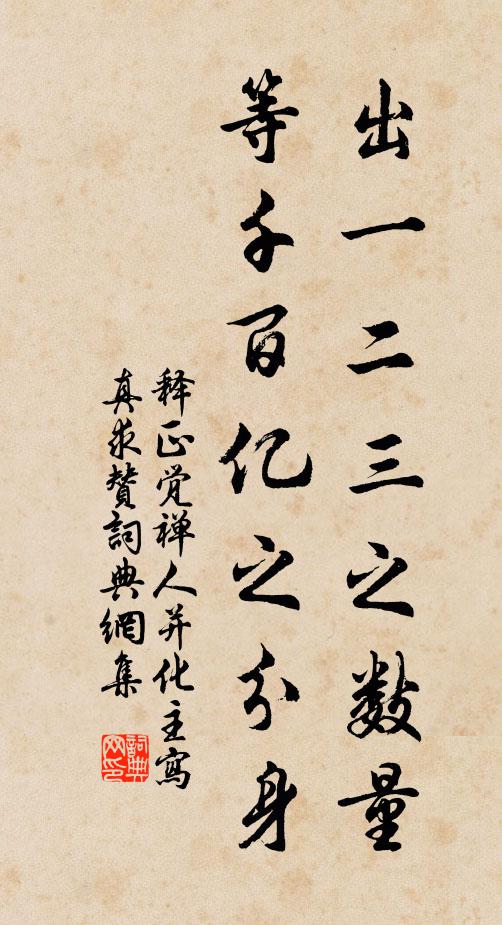 出一二三之数量
等千百亿之分身
释正觉禅人并化主寫
真求贊詞典網集
詞典网印